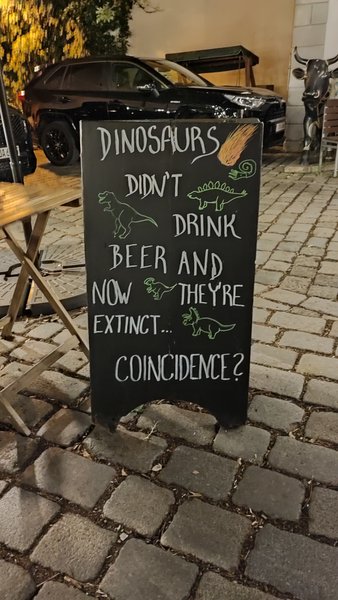 DINOSAURS
DIDN'T
DRINK
BEER AND
NOW THEY'RE
EXTINCT...
COINCIDENCE?